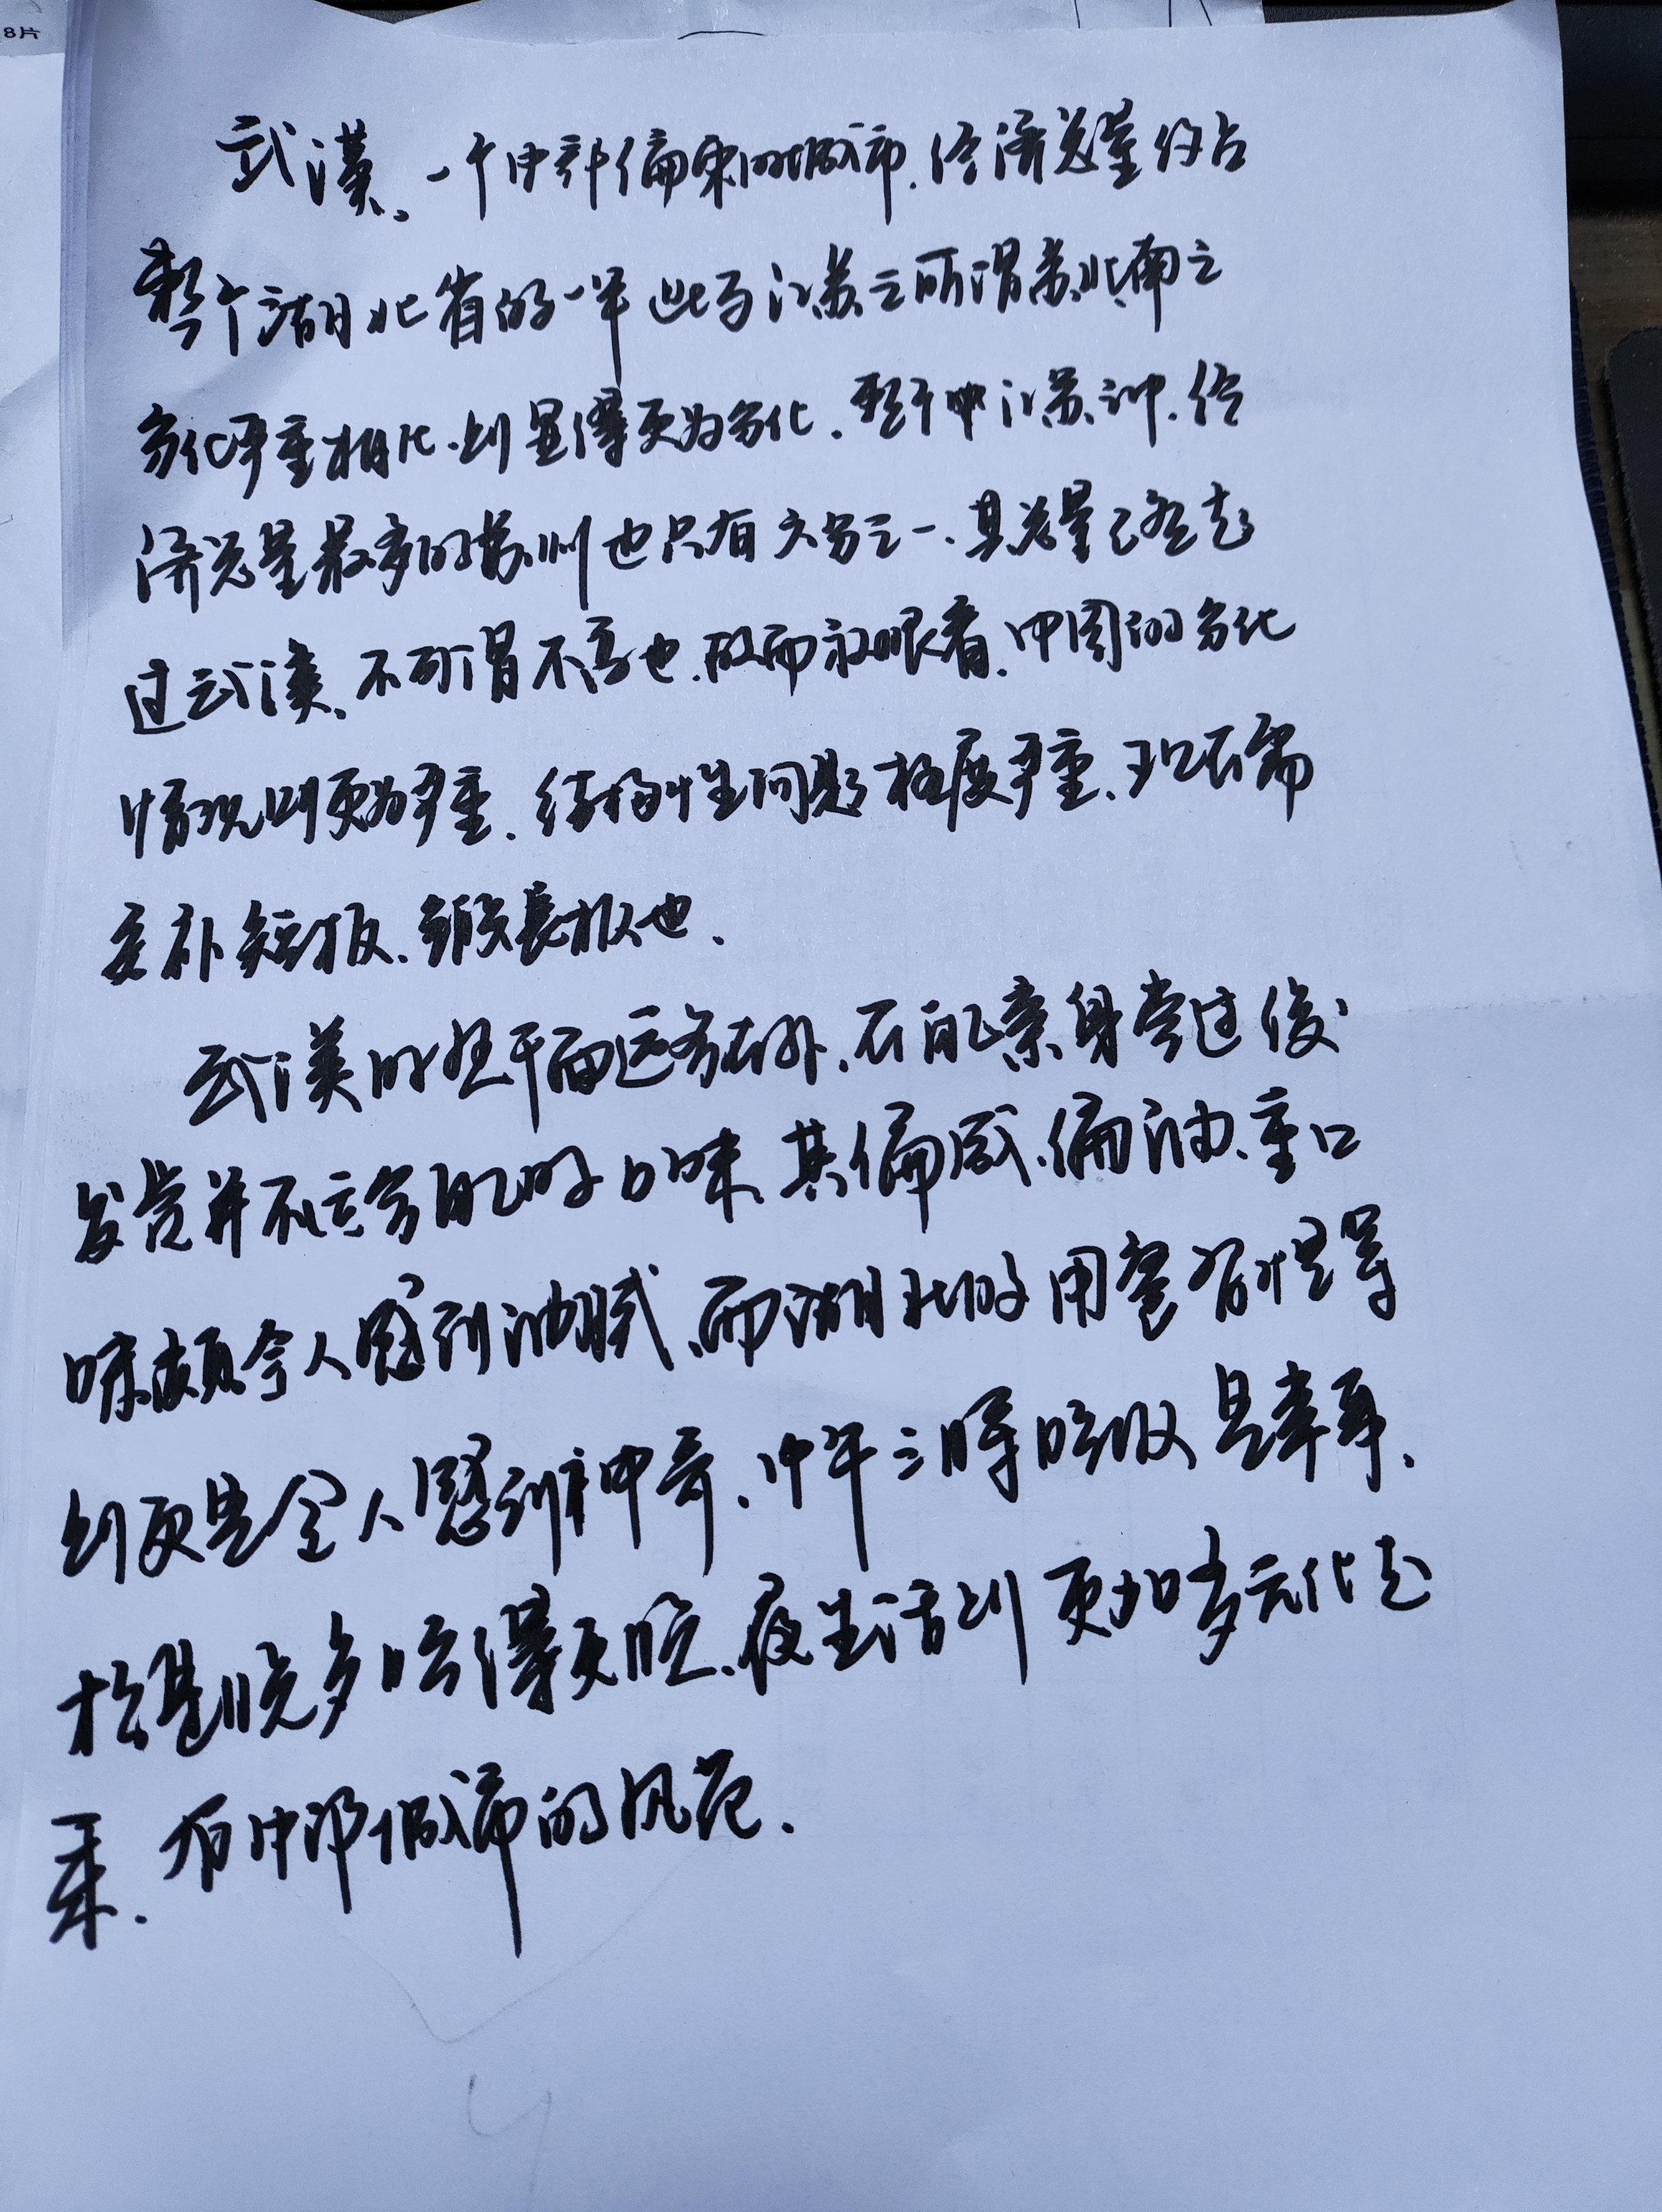 8片
武漢、一个中部偏东的城市.经济总量约占
整个湖北省的一半 此与江苏之所谓苏北南之
分化严重相比.则显得更为分化.整个 江苏 中.经
济总量最多的苏州也只有六分之一、其总量已经超
过武漢、不可谓不高也.故而 眼看、中国的分化
情况则更为严重.结构性问题极度严重、 不需
要补短板、锻长板也、
武漢的 干面远名在外、在自己亲身尝过後
发觉并不适合自己的口味、其偏咸、偏油、重口
味颇令人感到油腻、而湖北的用餐習惯等
则更是令人感到神奇、中午三时吃饭是幸事、
於是晚多吃得更晚、夜生活则更加多元化起
来.有中部城市的风范.